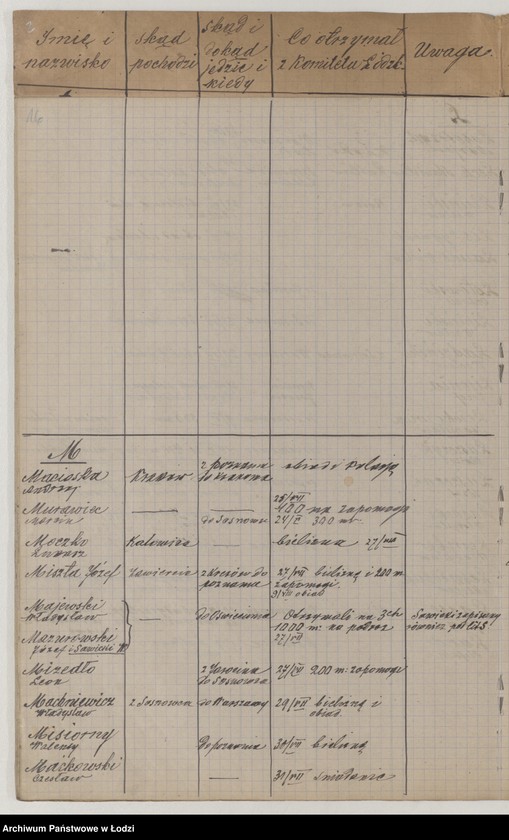 Imię i nazwisko
skąd pochodzi
skąd i dokąd jedzie i kiedy
Co otrzymał z Komitetu Łódzk.
Uwaga
16
M
Macioska Andrzej
Kraków
z poznania do Krakowa
obiad i kolację
Murawiec
do Sosnowca
25/VII 400 mk zapomogi
300 m.
Moczko Łukasz
Katowice
bielizna 27/VIII
Miszta Józef
Zawiercie
do poznania
27/VII bieliznę i 200 m zapomogi
31/VII obiad
Majewski Władysław
Mazurowski Józef i Sawicki
do Oswiecimia
Otrzymali na 3ch 1000 m. na podróż
27/VII
Sawicki zapisany również pod lit S
Mizedło Leon
z Jarocina do Sosnowca
27/VII 200 m. zapomogi
Machniewicz Władysław
z Sosnowca
do Warszawy
29/VII bieliznę i obiad.
Misiorny Walenty
do poznania
30/VII bieliznę
Maćkowski Czesław
31/VII śniadanie
Archiwum Państwowe w Łodzi